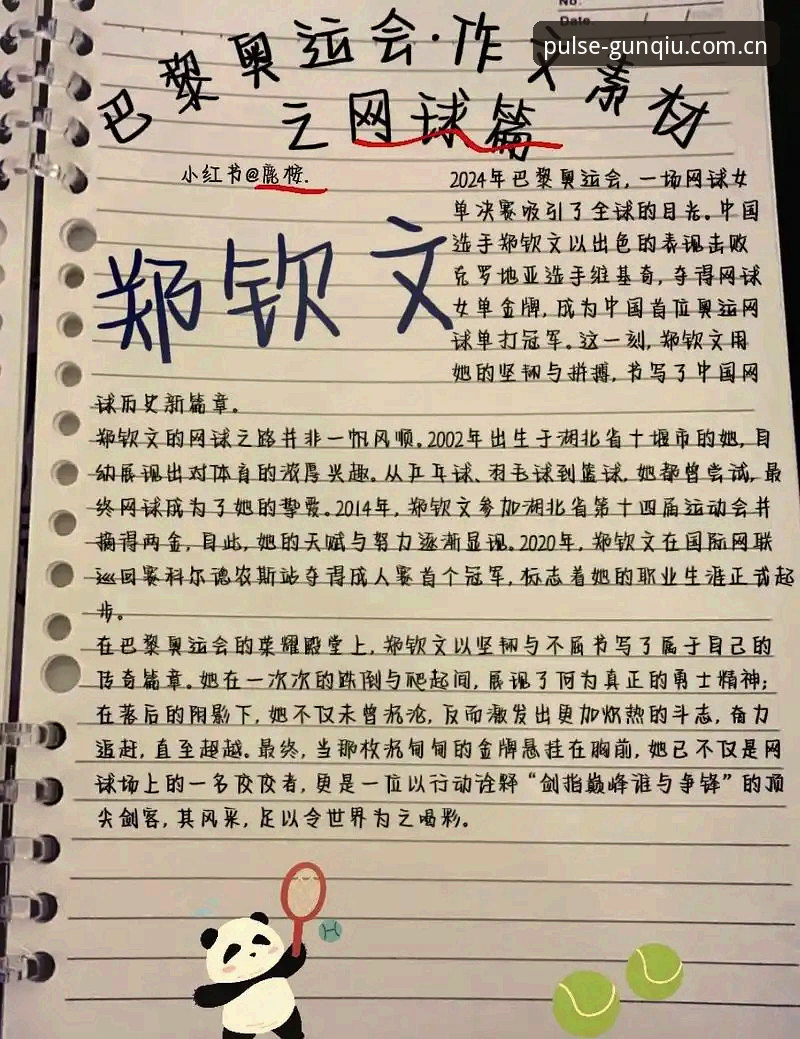 No.
Date.
pulse-gunqiu.com.cn
巴黎奥运会·作文素材
之网球篇
小红书@鹿桉.
郑钦文
2024年巴黎奥运会,一场网球女
单决赛吸引了全球的目光。中国
选手郑钦文以出色的表现击败
克罗地亚选手维基奇,夺得网球
女单金牌,成为中国首位奥运网
球单打冠军。这一刻,郑钦文用
她的坚韧与拼搏,书写了中国网
球历史新篇章。
郑钦文的网球之路并非一帆风顺。2002年出生于湖北省十堰市的她,自
幼展现出对体育的浓厚兴趣。从乒乓球、羽毛球到篮球,她都曾尝试,最
终网球成为了她的挚爱。2014年,郑钦文参加湖北省第十四届运动会并
摘得两金,自此,她的天赋与努力逐渐显现。2020年,郑钦文在国际网联
巡回赛科尔德农斯站夺得成人赛首个冠军,标志着她的职业生涯正式起
步。
在巴黎奥运会的荣耀殿堂上,郑钦文以坚韧与不屈书写了属于自己的
传奇篇章。她在一次次的跌倒与爬起间,展现了何为真正的勇士精神;
在落后的阴影下,她不仅未曾沉沦,反而激发出更加炽热的斗志,奋力
追赶,直至超越。最终,当那枚沉甸甸的金牌悬挂在胸前,她已不仅是网
球场上的一名佼佼者,更是一位以行动诠释“剑指巅峰谁与争锋”的顶
尖剑客,其风采,足以令世界为之喝彩。